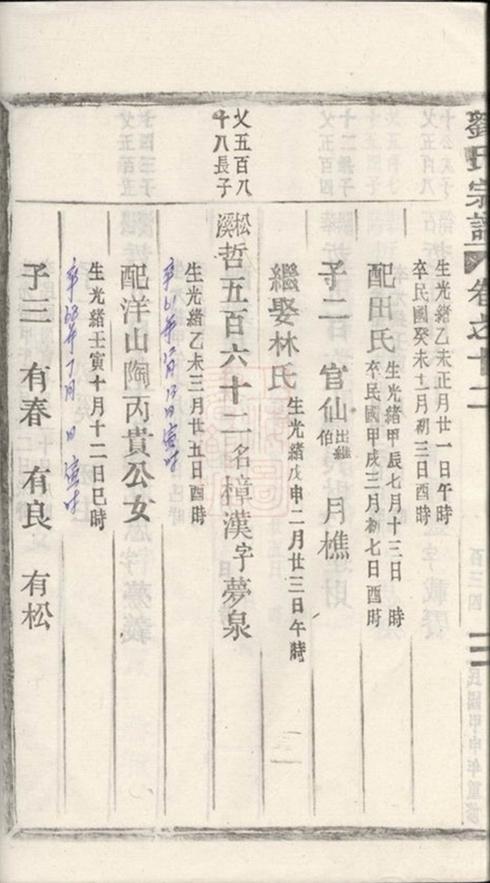 劉氏宗譜 卷之十二
生光緒乙未正月廿一日午時
卒民國癸未十一月初三日酉時
配田氏 生光緒甲辰七月十三日 時
卒民國甲戌三月初七日酉時
子二 官仙 出繼 伯 月樵
繼娶林氏 生光緒戊申二月廿三日午時
父五百八
十八長子
松溪 哲五百六十二名樟漢字夢泉
生光緒乙未三月廿五日酉時
卒61年12月13日寅时
配洋山陶丙貴公女
生光緒壬寅十月十二日巳時
卒68年7月 日 寅时
子三 有春 有良 有松